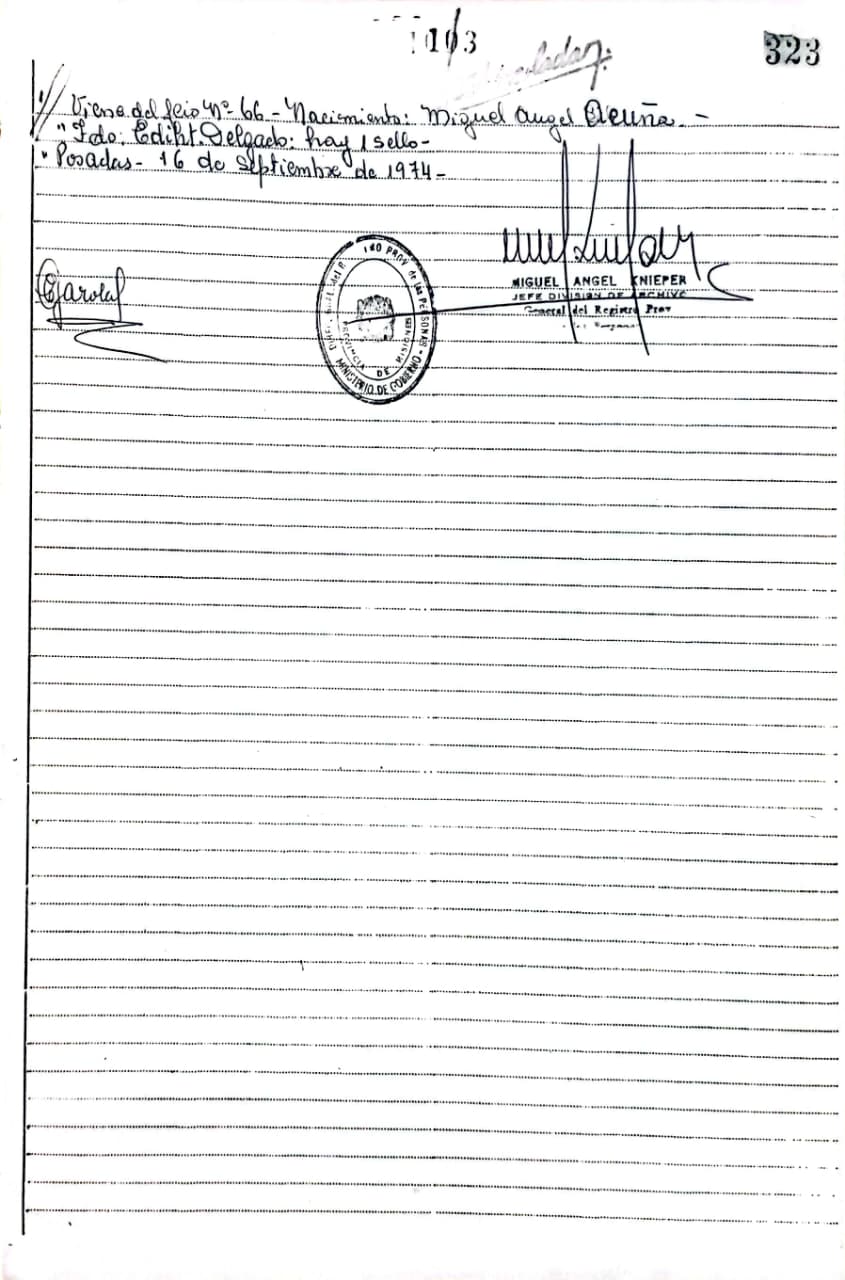 103
323
// Viene del folio Nº 66 - Nacimiento: Miguel Angel Acuña. -
" Fdo: Ediht. Delgado: hay 1 sello -
" Posadas - 16 de Septiembre de 1974 -
MIGUEL ANGEL KNIEPER
JEFE DIVISION DE ARCHIVO
General del Registro Prov
de las PERSONAS
PROVINCIA DE MISIONES
MINISTERIO DE GOBIERNO